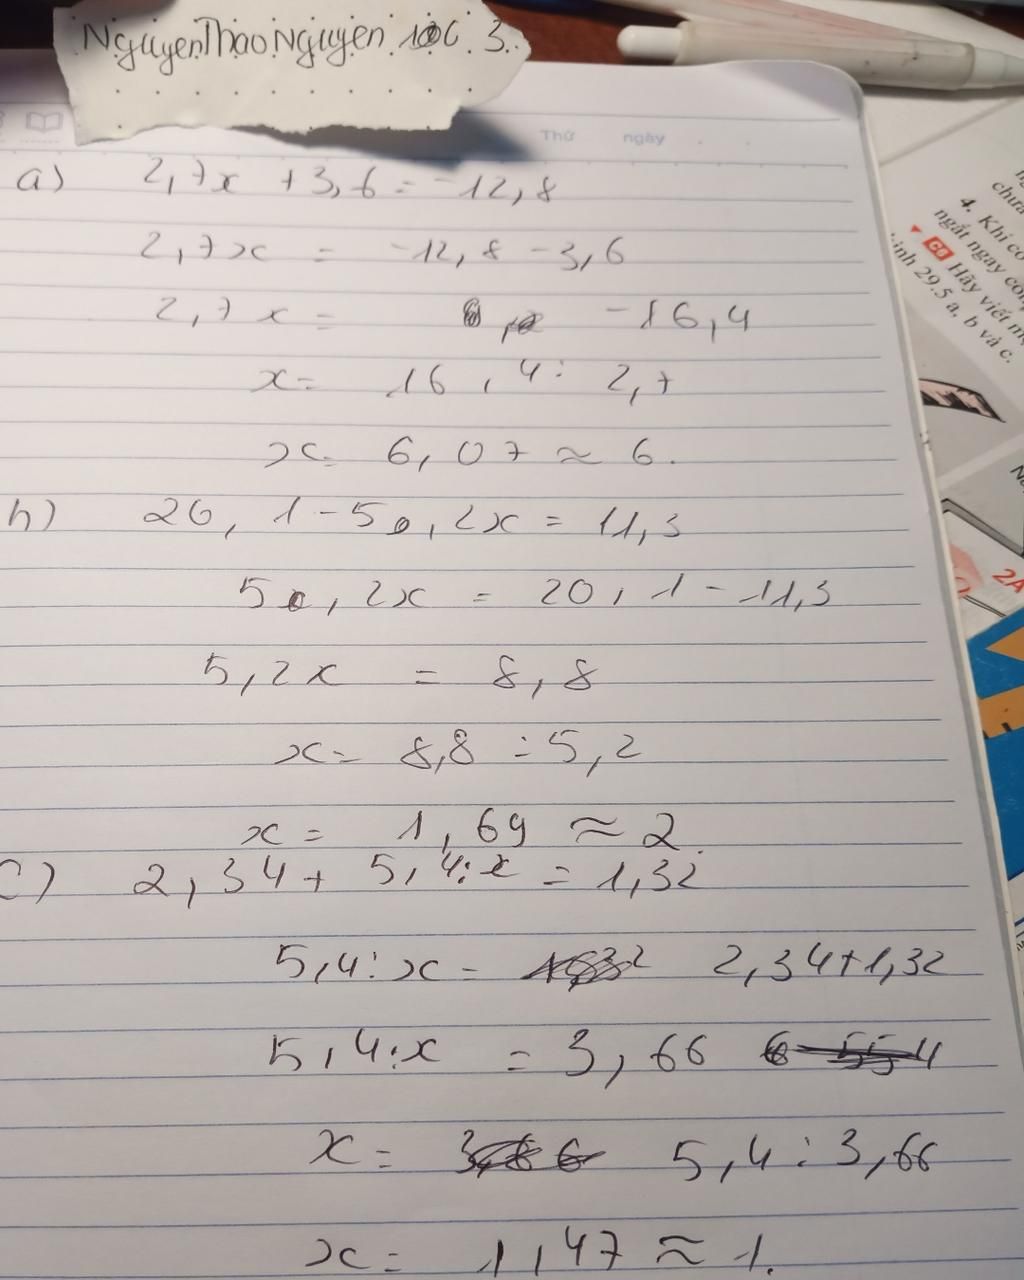 NguyenThaoNguyen 10C 3.
Thứ ngày
a) 2,7x + 3,6 = -12,8
2,7x = -12,8 - 3,6
2,7x = -16,4
x = 16,4 : 2,7
x = 6,07 ≈ 6.
b) 20,1 - 5,2x = 11,3
5,2x = 20,1 - 11,3
5,2x = 8,8
x = 8,8 : 5,2
x = 1,69 ≈ 2.
c) 2,34 + 5,4:x = 1,32
5,4:x = 2,34 + 1,32
5,4:x = 3,66
x = 5,4 : 3,66
x = 1,47 ≈ 1.
chưa
4. Khi có
ngắt ngay
Hãy viết
29.5 a, b và c.
2A